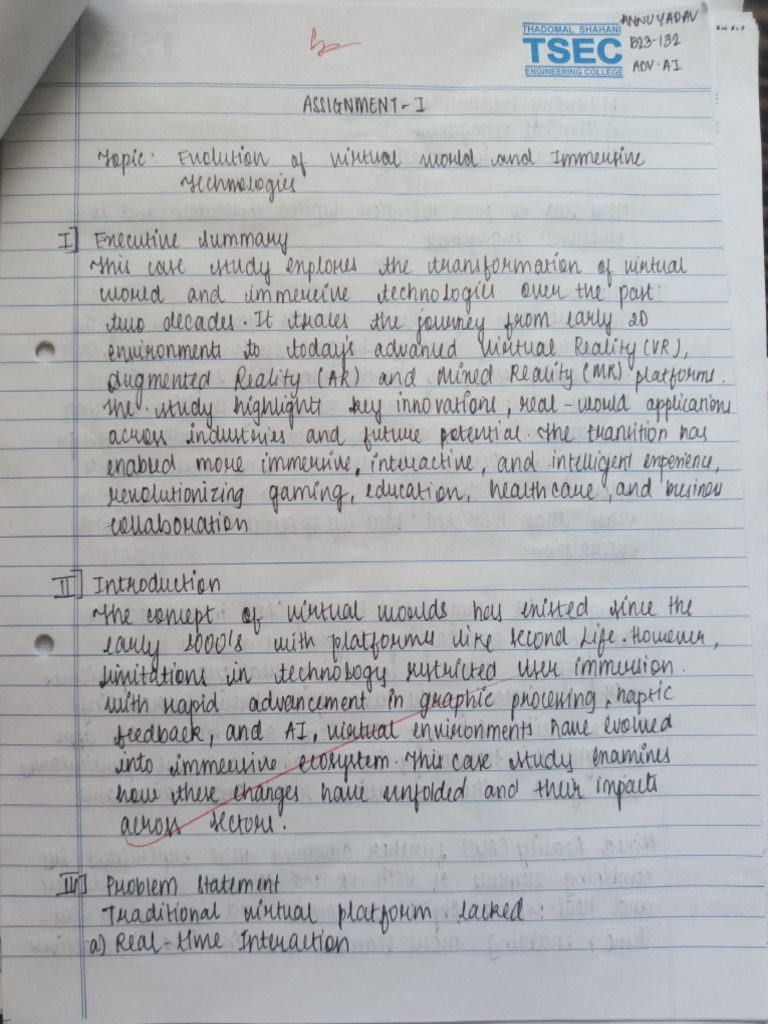 THADOMAL SHAHANI
TSEC
ENGINEERING COLLEGE
ANNU YADAV
B23-132
ADV. AI
ASSIGNMENT-I
Topic: Evolution of virtual world and Immersive
Technologies
I] Executive Summary
This case study explores the transformation of virtual
world and immersive technologies over the past
two decades. It traces the journey from early 2D
environments to today's advanced Virtual Reality (VR),
Augmented Reality (AR) and Mixed Reality (MR) platforms.
The study highlights key innovations, real-would applications
across industries and future potential. The transition has
enabled more immersive, interactive, and intelligent experience,
revolutionizing gaming, education, healthcare, and business
collaboration
II] Introduction
The concept of virtual worlds has existed since the
early 2000's with platforms like Second Life. However,
limitations in technology restricted user immersion.
with rapid advancement in graphic processing, haptic
feedback, and AI, virtual environments have evolved
into immersive ecosystem. This case study examines
how these changes have unfolded and their impacts
across sectors.
III] Problem Statement
Traditional virtual platform lacked:
a) Real-time Interaction